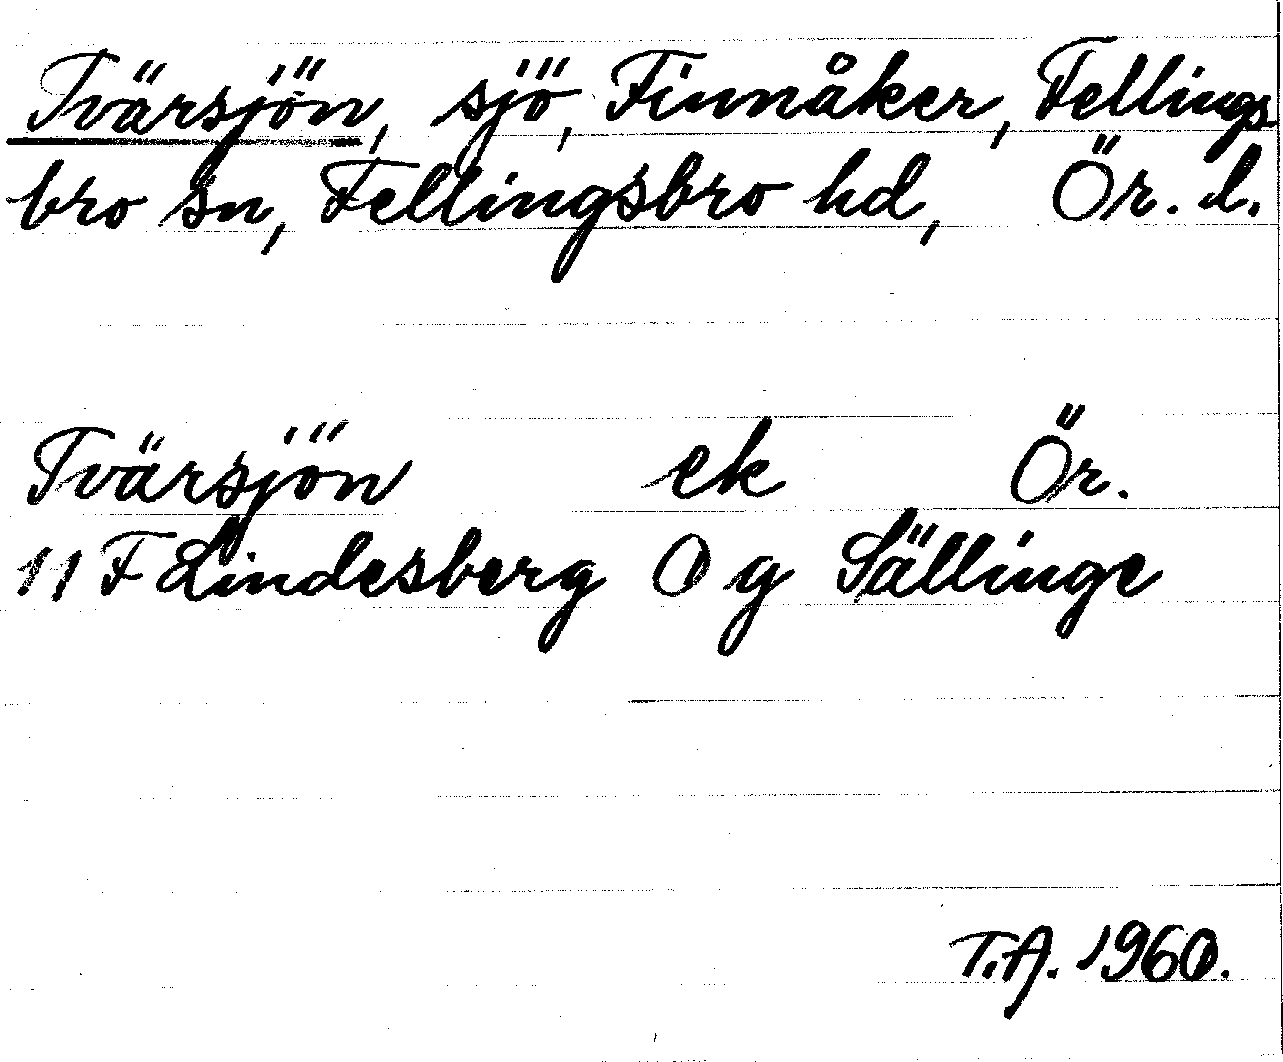 Tvärsjön, sjö, Finnåker, Fellings
bro sn, Fellingsbro hd, Ör. l.
Tvärsjön ek Ör.
11 F Lindesberg O g Sällinge
T.A. 1960.